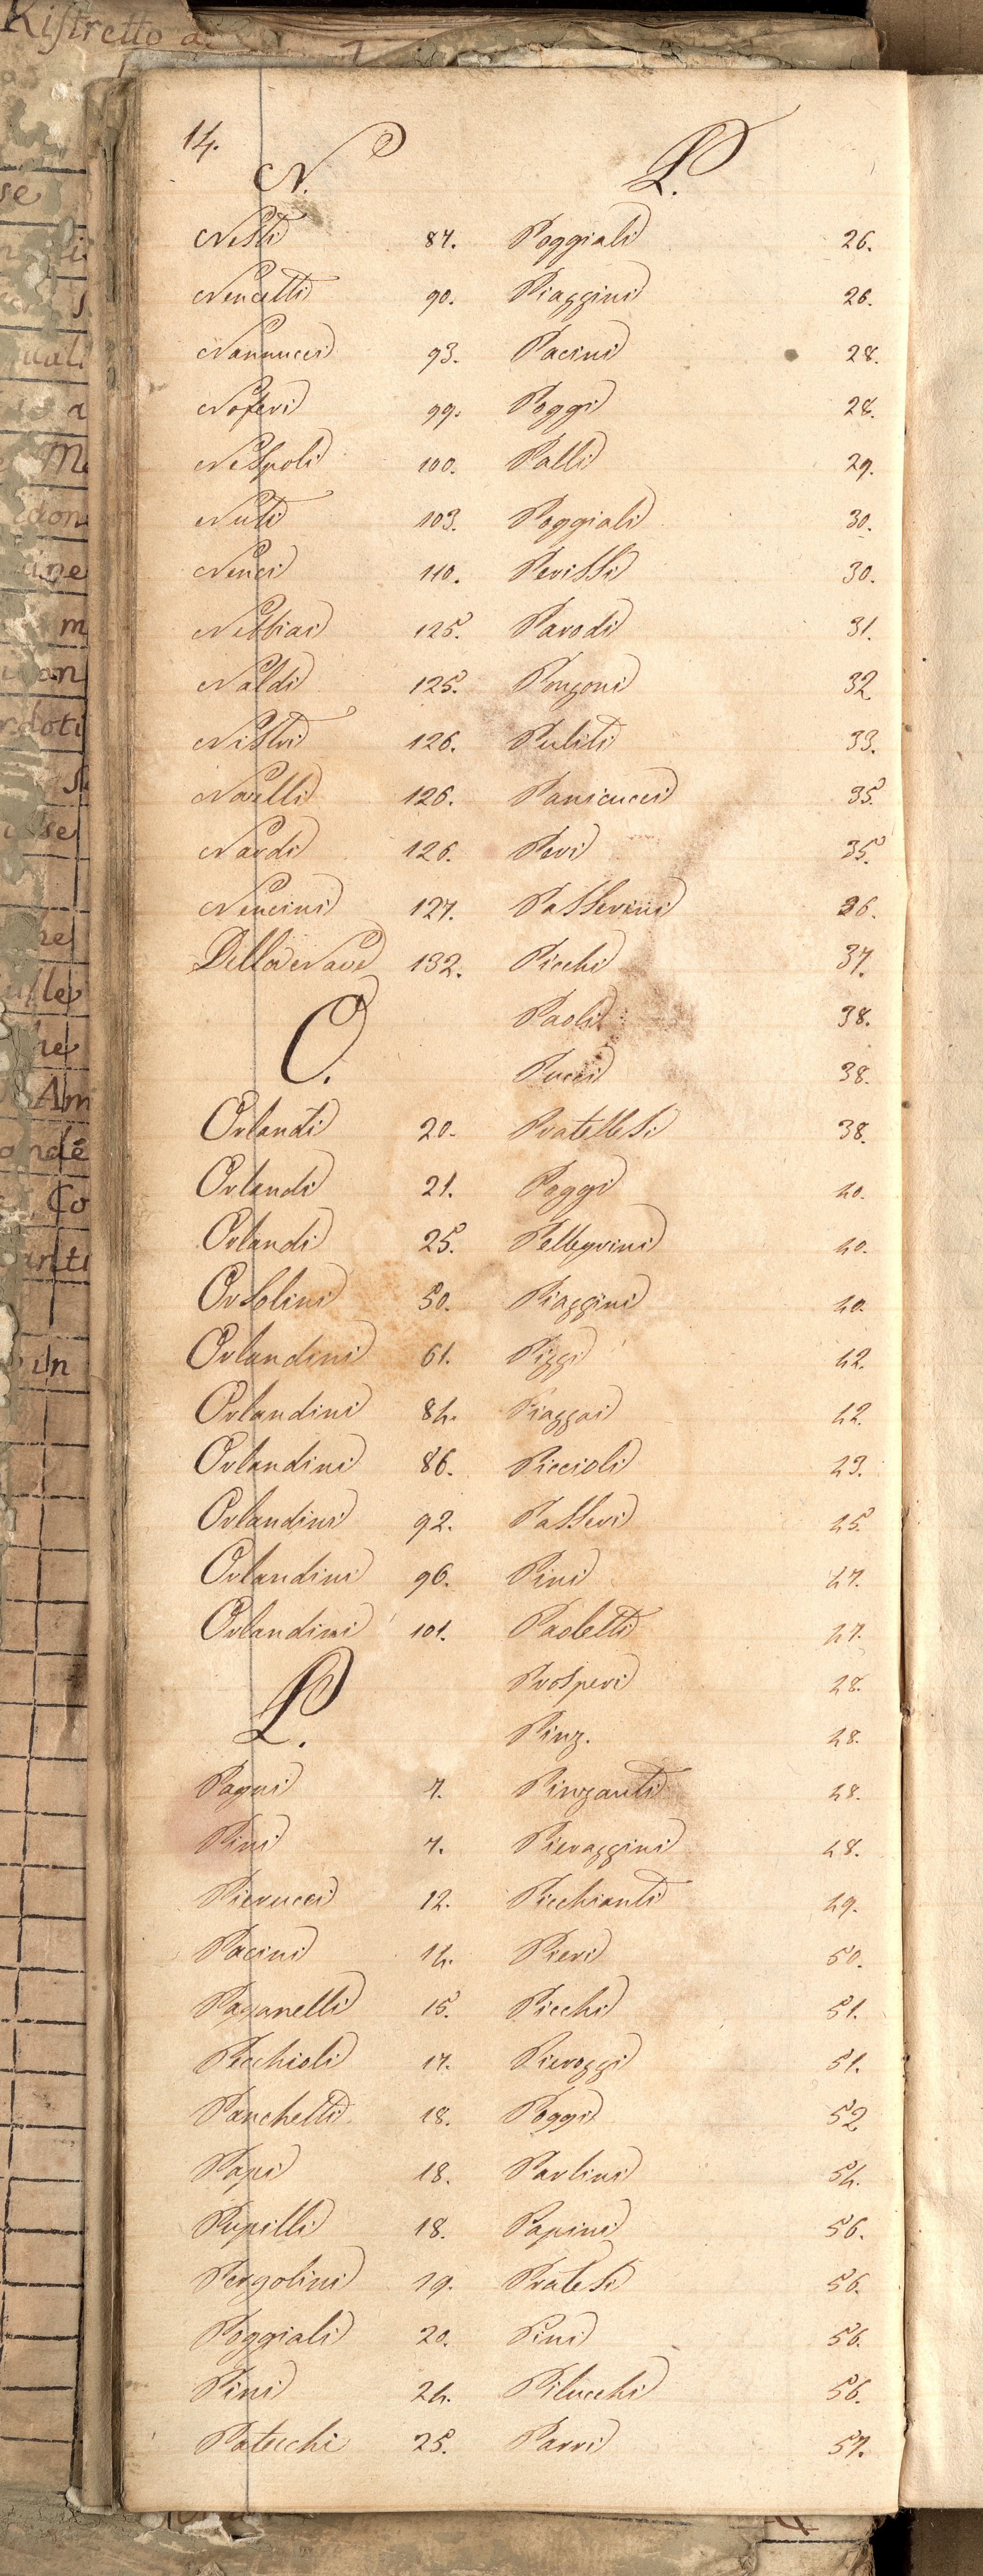 Ristretto d
14.
N.
Nesti 87.
Nencetti 90.
Nannucci 93.
Noferi 99.
Nespoli 100.
Nuti 103.
Nenci 110.
Nebbiai 125.
Naldi 125.
Nistri 126.
Novelli 126.
Nardi 126.
Nencini 127.
Della Nave 132.
O.
Orlandi 20.
Orlandi 21.
Orlandi 25.
Orsolini 50.
Orlandini 61.
Orlandini 84.
Orlandini 86.
Orlandini 92.
Orlandini 96.
Orlandini 101.
P.
Pagni 7.
Pini 7.
Pierucci 12.
Pacini 14.
Paganelli 15.
Picchioli 17.
Panchetti 18.
Papi 18.
Pupilli 18.
Pergolini 19.
Poggiali 20.
Pini 24.
Patecchi 25.
P.
Poggiali 26.
Piaggini 26.
Pacini 28.
Poggi 28.
Palli 29.
Poggiali 30.
Perissi 30.
Parodi 31.
Ponzoni 32
Puliti 33.
Panicucci 35.
Peri 35.
Passerini 36.
Picchi 37.
Paoli 38.
Pucci 38.
Pratellesi 38.
Poggi 40.
Pellegrini 40.
Piaggini 40.
Pizzi 42.
Piaggai 42.
Piccioli 43.
Passeri 45.
Pini 47.
Paoletti 47.
Prosperi 48.
Pinz. 48.
Pinzauti 48.
Pieraggini 48.
Picchianti 49.
Pieri 50.
Picchi 51.
Pieroggi 51.
Poggi 52
Parlini 54.
Papini 56.
Pratesi 56.
Pini 56.
Pilucchi 56.
Parri 57.